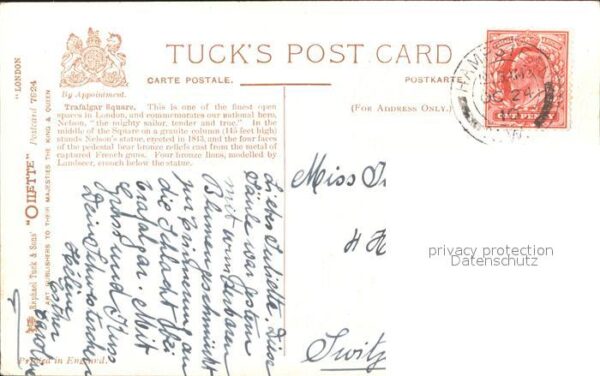 TUCK'S POST CARD
CARTE POSTALE.
POSTKARTE
By Appointment.
(For Address Only.)
Trafalgar Square. This is one of the finest open
spaces in London, and commemorates our national hero,
Nelson, "the mighty sailor, tender and true." In the
middle of the Square on a granite column (145 feet high)
stands Nelson's statue, erected in 1843, and the four faces
of the pedestal bear bronze reliefs cast from the metal of
captured French guns. Four bronze lions, modelled by
Landseer, crouch below the statue.
"LONDON"
Postcard 7924
Raphael Tuck & Sons' "OILETTE"
ART PUBLISHERS TO THEIR MAJESTIES THE KING & QUEEN
Printed in England.
Liebe Juliette. Diese
Säule war gestern
mit wunderbaren
Blumen geschmückt
zur Erinnerung an
die Schlacht bei
Trafalgar. Mit
Gruss und Kuss
Dein Schwesterchen
Miss
4 H
Switz
HAMPSTEAD
OC 24
N.W.
ONE PENNY
privacy protection
Datenschutz